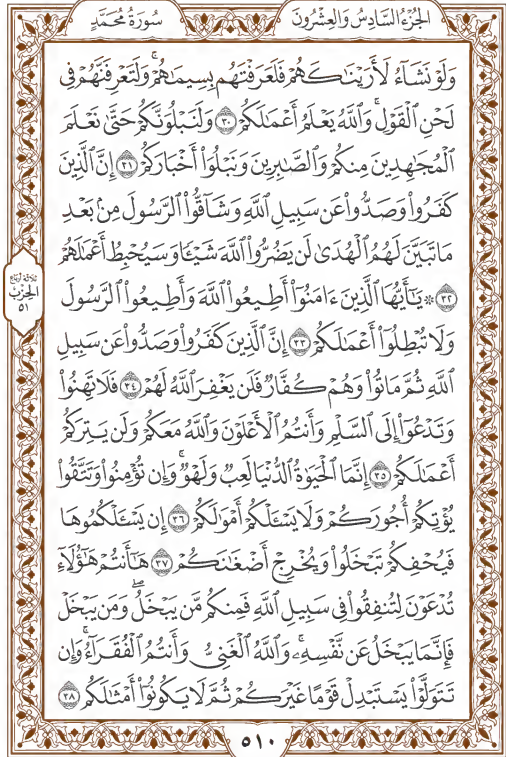 الجُزْءُ السَّادِسُ وَالعِشْرُونَ
سُورَةُ مُحَمَّدٍ
وَلَوۡ نَشَآءُ لَأَرَيۡنَٰكَهُمۡ فَلَعَرَفۡتَهُم بِسِيمَٰهُمۡۚ وَلَتَعۡرِفَنَّهُمۡ فِي
لَحۡنِ ٱلۡقَوۡلِۚ وَٱللَّهُ يَعۡلَمُ أَعۡمَٰلَكُمۡ ٣٠ وَلَنَبۡلُوَنَّكُمۡ حَتَّىٰ نَعۡلَمَ
ٱلۡمُجَٰهِدِينَ مِنكُمۡ وَٱلصَّٰبِرِينَ وَنَبۡلُوَاْ أَخۡبَارَكُمۡ ٣١ إِنَّ ٱلَّذِينَ
كَفَرُواْ وَصَدُّواْ عَن سَبِيلِ ٱللَّهِ وَشَآقُّواْ ٱلرَّسُولَ مِنۢ بَعۡدِ
مَا تَبَيَّنَ لَهُمُ ٱلۡهُدَىٰ لَن يَضُرُّواْ ٱللَّهَ شَيۡـٔٗا وَسَيُحۡبِطُ أَعۡمَٰلَهُمۡ
٣٢ ۞ يَٰٓأَيُّهَا ٱلَّذِينَ ءَامَنُوٓاْ أَطِيعُواْ ٱللَّهَ وَأَطِيعُواْ ٱلرَّسُولَ
وَلَا تُبۡطِلُوٓاْ أَعۡمَٰلَكُمۡ ٣٣ إِنَّ ٱلَّذِينَ كَفَرُواْ وَصَدُّواْ عَن سَبِيلِ
ٱللَّهِ ثُمَّ مَاتُواْ وَهُمۡ كُفَّارٞ فَلَن يَغۡفِرَ ٱللَّهُ لَهُمۡ ٣٤ فَلَا تَهِنُواْ
وَتَدۡعُوٓاْ إِلَى ٱلسَّلۡمِ وَأَنتُمُ ٱلۡأَعۡلَوۡنَ وَٱللَّهُ مَعَكُمۡ وَلَن يَتِرَكُمۡ
أَعۡمَٰلَكُمۡ ٣٥ إِنَّمَا ٱلۡحَيَوٰةُ ٱلدُّنۡيَا لَعِبٞ وَلَهۡوٞۚ وَإِن تُؤۡمِنُواْ وَتَتَّقُواْ
يُؤۡتِكُمۡ أُجُورَكُمۡ وَلَا يَسۡـَٔلۡكُمۡ أَمۡوَٰلَكُمۡ ٣٦ إِن يَسۡـَٔلۡكُمُوهَا
فَيُحۡفِكُمۡ تَبۡخَلُواْ وَيُخۡرِجۡ أَضۡغَٰنَكُمۡ ٣٧ هَٰٓأَنتُمۡ هَٰٓؤُلَآءِ
تُدۡعَوۡنَ لِتُنفِقُواْ فِي سَبِيلِ ٱللَّهِ فَمِنكُم مَّن يَبۡخَلُۖ وَمَن يَبۡخَلۡ
فَإِنَّمَا يَبۡخَلُ عَن نَّفۡسِهِۦۚ وَٱللَّهُ ٱلۡغَنِيُّ وَأَنتُمُ ٱلۡفُقَرَآءُۚ وَإِن
تَتَوَلَّوۡاْ يَسۡتَبۡدِلۡ قَوۡمًا غَيۡرَكُمۡ ثُمَّ لَا يَكُونُوٓاْ أَمۡثَٰلَكُم ٣٨
ثلاثة أرباع
الحزب
٥١
٥١٠